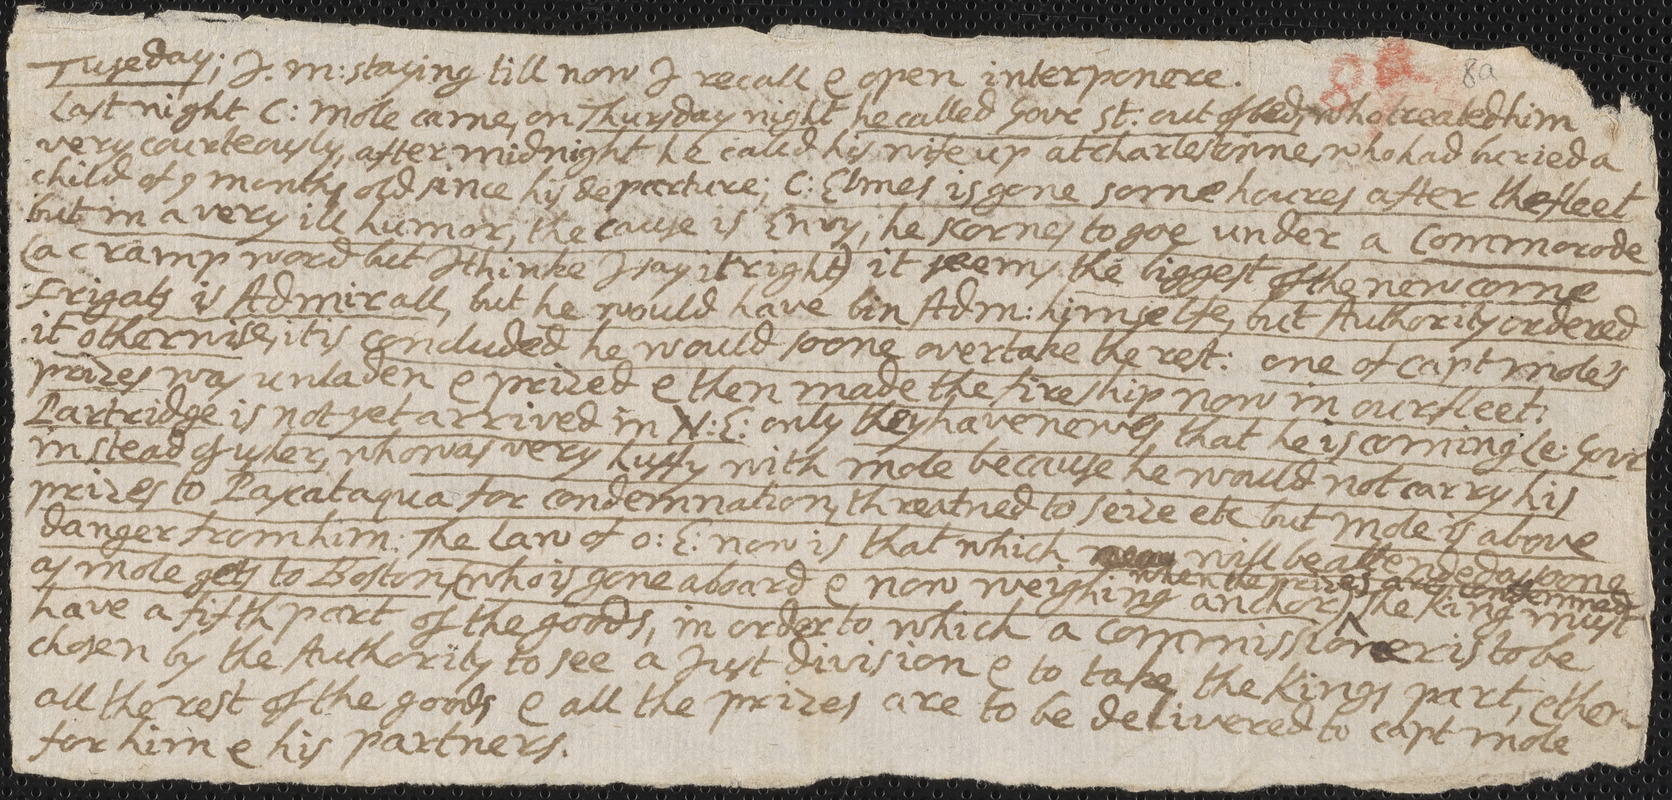 8a 8a
Tuseday; J. m: staying till now I recall & open interponere.
Last night C: mole came, on Thursday night he called Govr St: out of bed, who treated him
very courteously, after midnight he calld his wife up at charlestonne, who had buried a
child of 9 months old since his departure; C: Elmes is gone some houres after the fleet
but in a very ill humor, the cause is Envy, he scornes to goe under a Commorode
(a cramp word but I thinke I say it right) it seems the biggest of the new come
Frigats is Admirall, but he would have bin Adm: himselfe, but Authority ordered
it otherwise, it is concluded he would soone overtake the rest: one of capt mole's
prizes was unladen & prized & then made the fireship now in our fleet:
Partridge is not yet arrived in N: E: only they have newes that he is coming Le: Govr
instead of usher, who was very huffy with mole because he would not carry his
prizes to Paxataqua for condemnation, threatned to seize etc but mole is above
danger from him: The Law of O: E: now is that which will be attended as soone
as mole gets to Boston, (who is gone aboard & now weighing anchor) when the prizes are condemned The King must
have a fifth part of the goods, in order to which a commissioner is to be
chosen by the Authority to see a Just division & to take the Kings part, & then
all the rest of the goods & all the prizes are to be delivered to capt mole
for him & his partners.